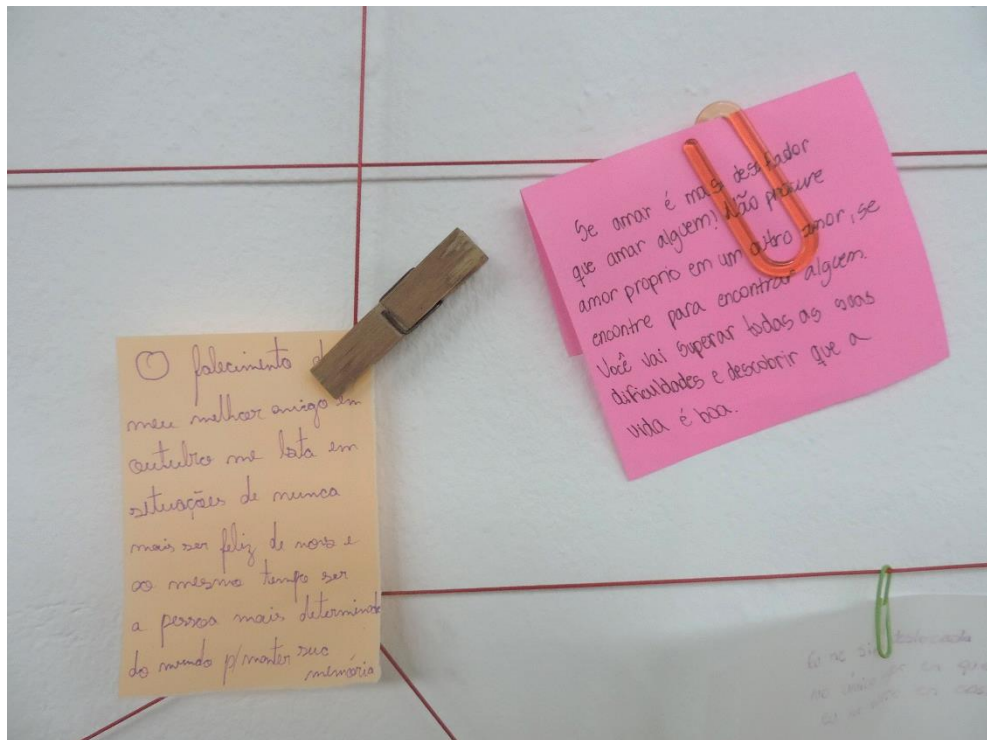 O falecimento d
meu melhor amigo em
outubro me bota em
situações de nunca
mais ser feliz de novo e
ao mesmo tempo ser
a pessoa mais determinada
do mundo p/ manter sua
memória
Se amar é mais desafiador
que amar alguem! Não procure
amor proprio em um outro amor, se
encontre para encontrar alguem.
Você vai superar todas as suas
dificuldades e descobrir que a
vida é boa.
Eu me